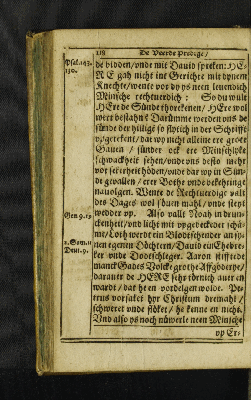 118 De Veerde Predige/
Psal. 143.
130.
de bidden/vnde mit Dauid spreken: HE-
RE gah nicht int Gerichte mit dynem
Knechte/wente vor dy ys neen leuendich
Minsche rechtuerdich: So du wult
HEre de Sünde thorekenen/ HEre wol
wert bestahn? Darümme werden vns de
sünde der hillige so flytich in der Schrifft
vpgetekent/dat wy nicht alleine ere grote
Gauen / sünder ock ere Minschlike
schwackheit sehen/vnde vns desto mehr
vor sekerheit höden/vnde dar wy in Sün-
de geuallen / erer Bothe vnde bekehringe
nauolgen. Wente de Rechtuerdige valt
des Dages wol söuen mahl/ vnde steyt
wedder vp. Also valt Noah in drun-
Gen 9.19
ckenheit/vnd licht mit vpgedecketer schä-
me/Loth werdt ein Blodtschender an sy-
2. Sam. 11
nen egenen Döchtern/Dauid ein Ehebre-
Deut. 9.
ker vnde Dodtschleger. Aaron stifftede
manck Gades Volcke grothe Affgöderye/
darauer de HERE sehr törnich auer en
wardt/ dat he en vordelgen wolde. Pe-
trus vorsaket syn Christum dremahl/
schweret vnde flöket/ he kenne en nicht.
Vnd also ys noch nüwerle neen Minsche
vp Er-